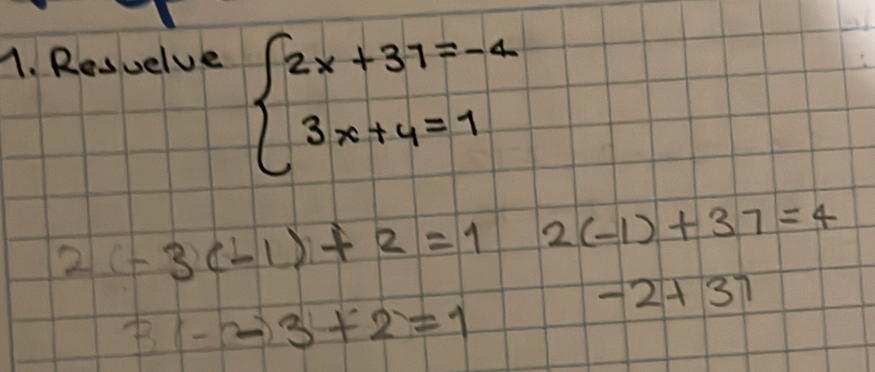 1. Resuelve { 2x + 37 = -4
3x + y = 1
3(-1) + 2 = 1 2(-1) + 37 = 4
3 + 2 = 1 -2 + 37